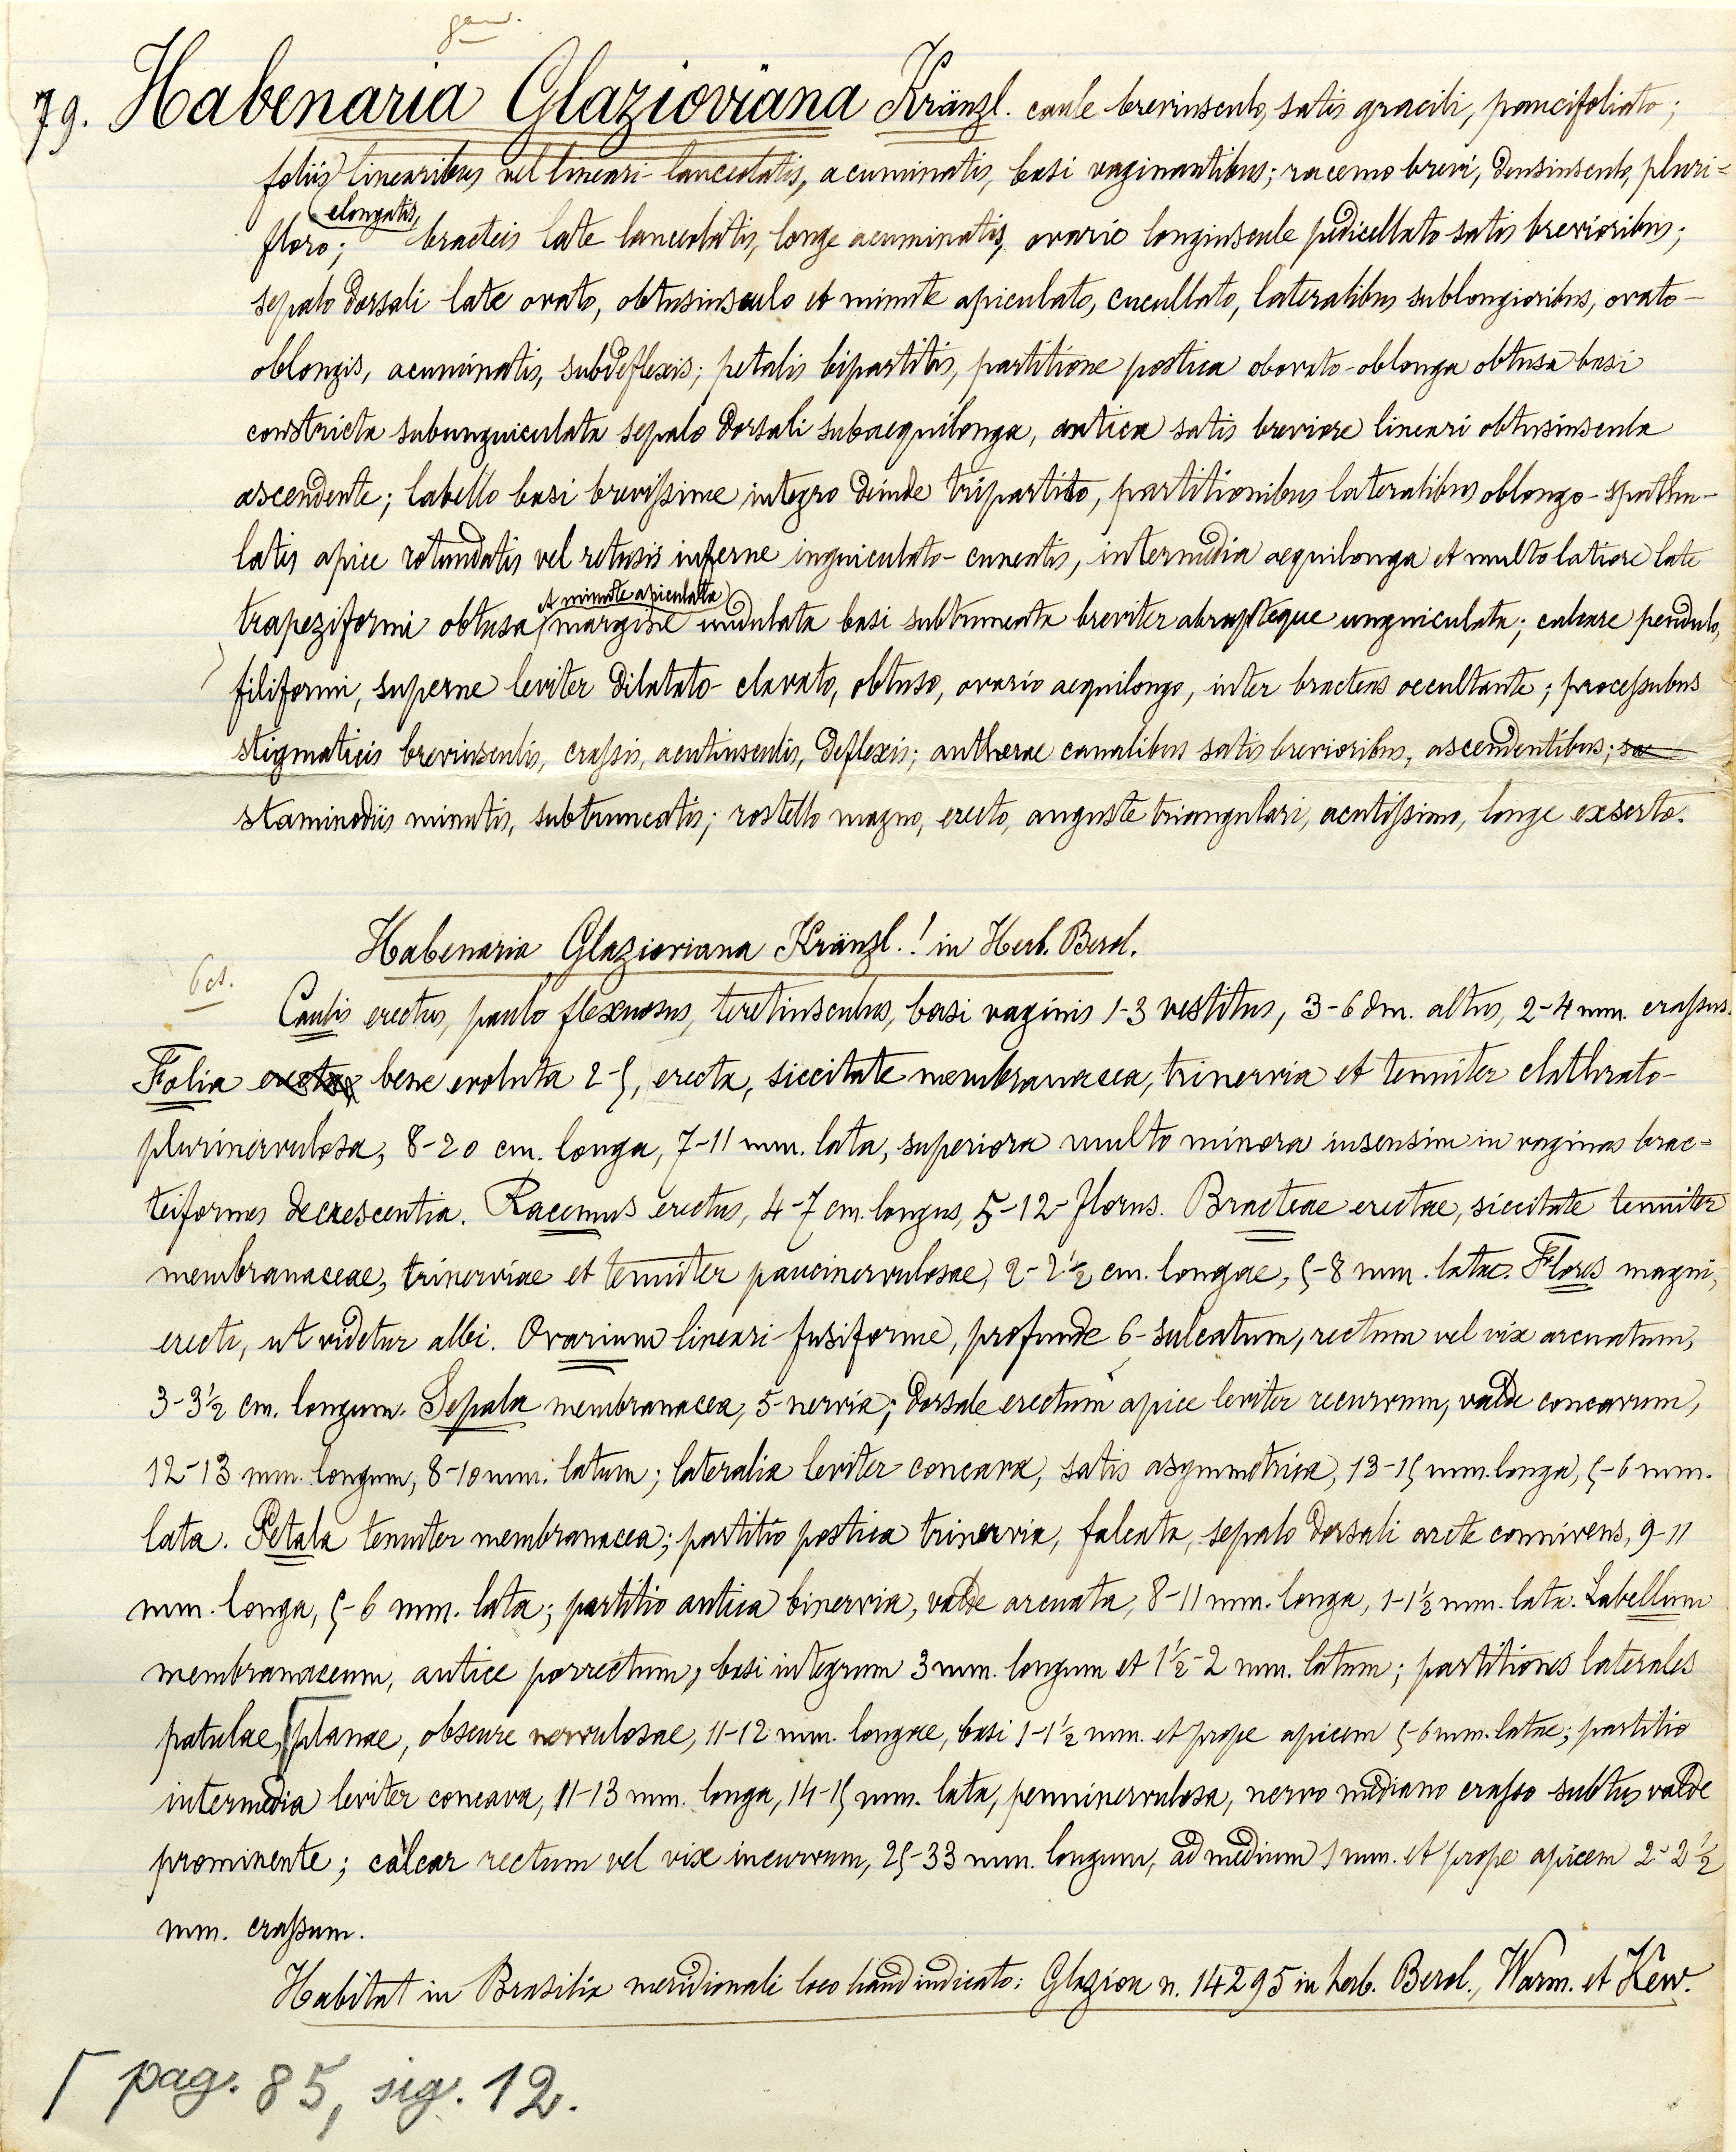 79. Habenaria Glazioviana Kränzl. caule breviusculo, satis gracili, paucifoliato;
foliis linearibus vel lineari-lanceolatis, acuminatis, basi vaginantibus; racemo brevi, densiusculo, pluri=
elongatis,
floro; bracteis late lanceolatis, longe acuminatis, ovario longiuscule pedicellato satis brevioribus;
sepalo dorsali late ovato, obtusiusculo et minute apiculato, cucullato, lateralibus sublongioribus, ovato-
oblongis, acuminatis, subdeflexis; petalis bipartitis, partitione postica obovato-oblonga obtusa basi
constricta subunguiculata sepalo dorsali subaequilonga, antica satis breviore lineari obtusiuscula
ascendente; labello basi brevissime integro deinde tripartito, partitionibus lateralibus oblongo-spathu-
latis apice rotundatis vel retusis inferne inguiculato-cuneatis, intermedia aequilonga et multo latiore late
et minute apiculata
trapeziformi obtusa margine undulata basi subtruncata breviter abrupteque unguiculata; calcare pendulo,
filiformi, superne leviter dilatato-clavato, obtuso, ovario aequilongo, inter bracteas occultante; processubus
stigmaticis breviusculis, crassis, acutiusculis, deflexis; antherae canalibus satis brevioribus, ascendentibus; sa
staminodiis minutis, subtruncatis; rostello magno, erecto, anguste triangulari, acutissimo, longe exserto.
Habenaria Glazioviana Kränzl.! in Herb. Berol.
Caulis erectus, paulo flexuosus, teretiusculus, basi vaginis 1-3 vestitus, 3-6 dm. altus, 2-4 mm. crassus.
Folia erecta bene evoluta 2-5, erecta, siccitate membranacea, trinervia et tenuiter clathrato-
plurinervulosa, 8-20 cm. longa, 7-11 mm. lata, superiora multo minora insensim in vaginas brac=
teiformes decrescentia. Racemus erectus, 4-7 cm. longus, 5-12-florus. Bracteae erectae, siccitate tenuiter
membranaceae, trinerviae et tenuiter paucinervulosae, 2-2½ cm. longae, 5-8 mm. latae. Flores magni,
erecti, ut videtur albi. Ovarium lineari-fusiforme, profunde 6-sulcatum, rectum vel vix arcuatum,
3-3½ cm. longum. Sepala membranacea, 5-nervia; dorsale erectum apice leviter recurvum, valde concavum,
12-13 mm. longum, 8-10 mm. latum; lateralia leviter concava, satis asymmetrica, 13-15 mm. longa, 5-6 mm.
lata. Petala tenuiter membranacea; partitio postica trinervia, falcata, sepalo dorsali arcte connivens, 9-11
mm. longa, 5-6 mm. lata; partitio antica binervia, valde arcuata, 8-11 mm. longa, 1-1½ mm. lata. Labellum
membranaceum, antice porrectum, basi integrum 3 mm. longum et 1½-2 mm. latum; partitiones laterales
patulae, planae, obscure nervulosae, 11-12 mm. longae, basi 1-1½ mm. et prope apicem 5-6 mm. latae; partitio
intermedia leviter concava, 11-13 mm. longa, 14-15 mm. lata, penninervulosa, nervo mediano crasso subtus valde
prominente; calcar rectum vel vix incurvum, 25-33 mm. longum, ad medium 1 mm. et prope apicem 2-2½
mm. crassum.
Habitat in Brasilia meridionali loco haud indicato: Glaziou n. 14295 in herb. Berol., Warm. et Kew.
⌈ pag. 85, sig. 12.